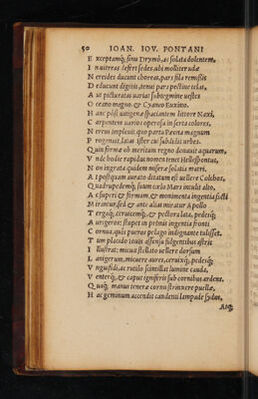 50 IOAN. IOV. PONTANI
E xceptamq́; sinu Drymò, ac solata dolentem,
I nuitreas defert sedes, ubi molliter udæ
N ereides ducunt choreas, pars fila remissis
D educunt digitis, tenui pars pectine telas,
A ut picturatas uarias subtegmine uestes
O ceano magno &
H anc post uaga spaciantem littore Naxi,
C arpentem uarios operosa in serta colores,
N ereus impleuit, quo parta Pæona magnum
P rogenuit, latæ ister cui subditus urbes.
Q uin formæ ob meritum regno donauit aquarum,
V nde hodie rapidus nomen tenet Hellespontus,
N on ingrata quidem miseræ solatia matri.
A t postquam aurato ditatum est uellere Colchos,
Q uadrupedemq́; suum luco Mars inculit alto,
A esperi & formam, & monimenta ingentia facti
M iratur, sed & ante alios miratur Apollo
T ergaq́; ceruicemq́; & pectora lata, pedesq́;
A urigeros: stupet in primis ingentia fronti
C ornua, quîs pueros pelago indignante tulisset.
T um placido touis assensu fulgentibus astris
I llustrat: micua stellato uellere dorsum
L anigerum, micuere aures, ceruixq́; pedesq́;
V ngufidi, ac rutilo scintillat lumine cauda,
V enterq́; & caput igniferis sub cornibus ardens.
Q uoq́; manus teneræ cornu strinxere puellæ,
H ac geminum accendis candenti lampade sydus,
Atq́;